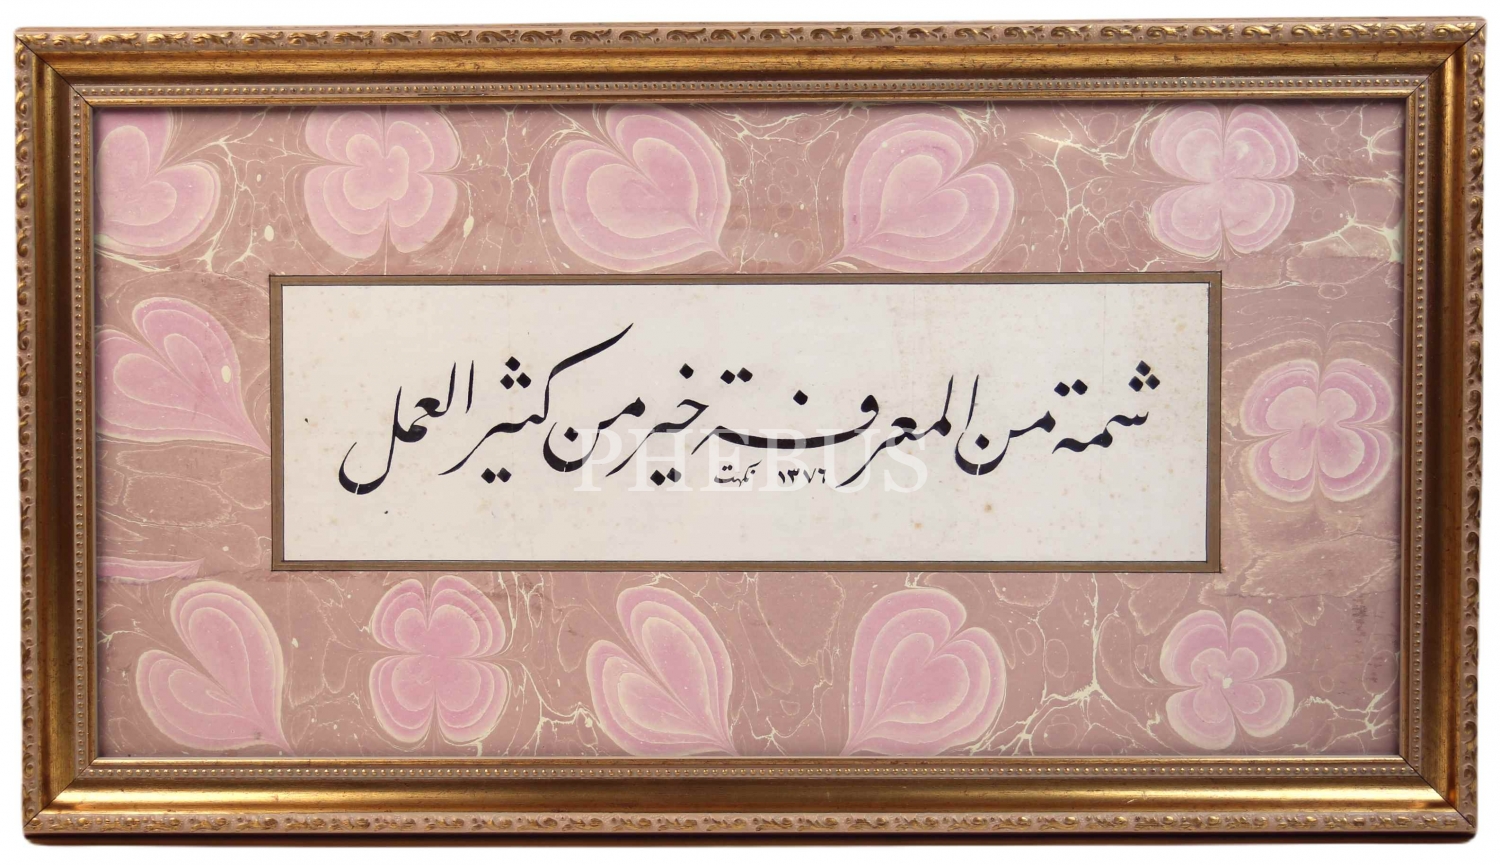 شمة من المعرفة خير من كثير العمل
نكهت ١٣٧٦
PHEBUS